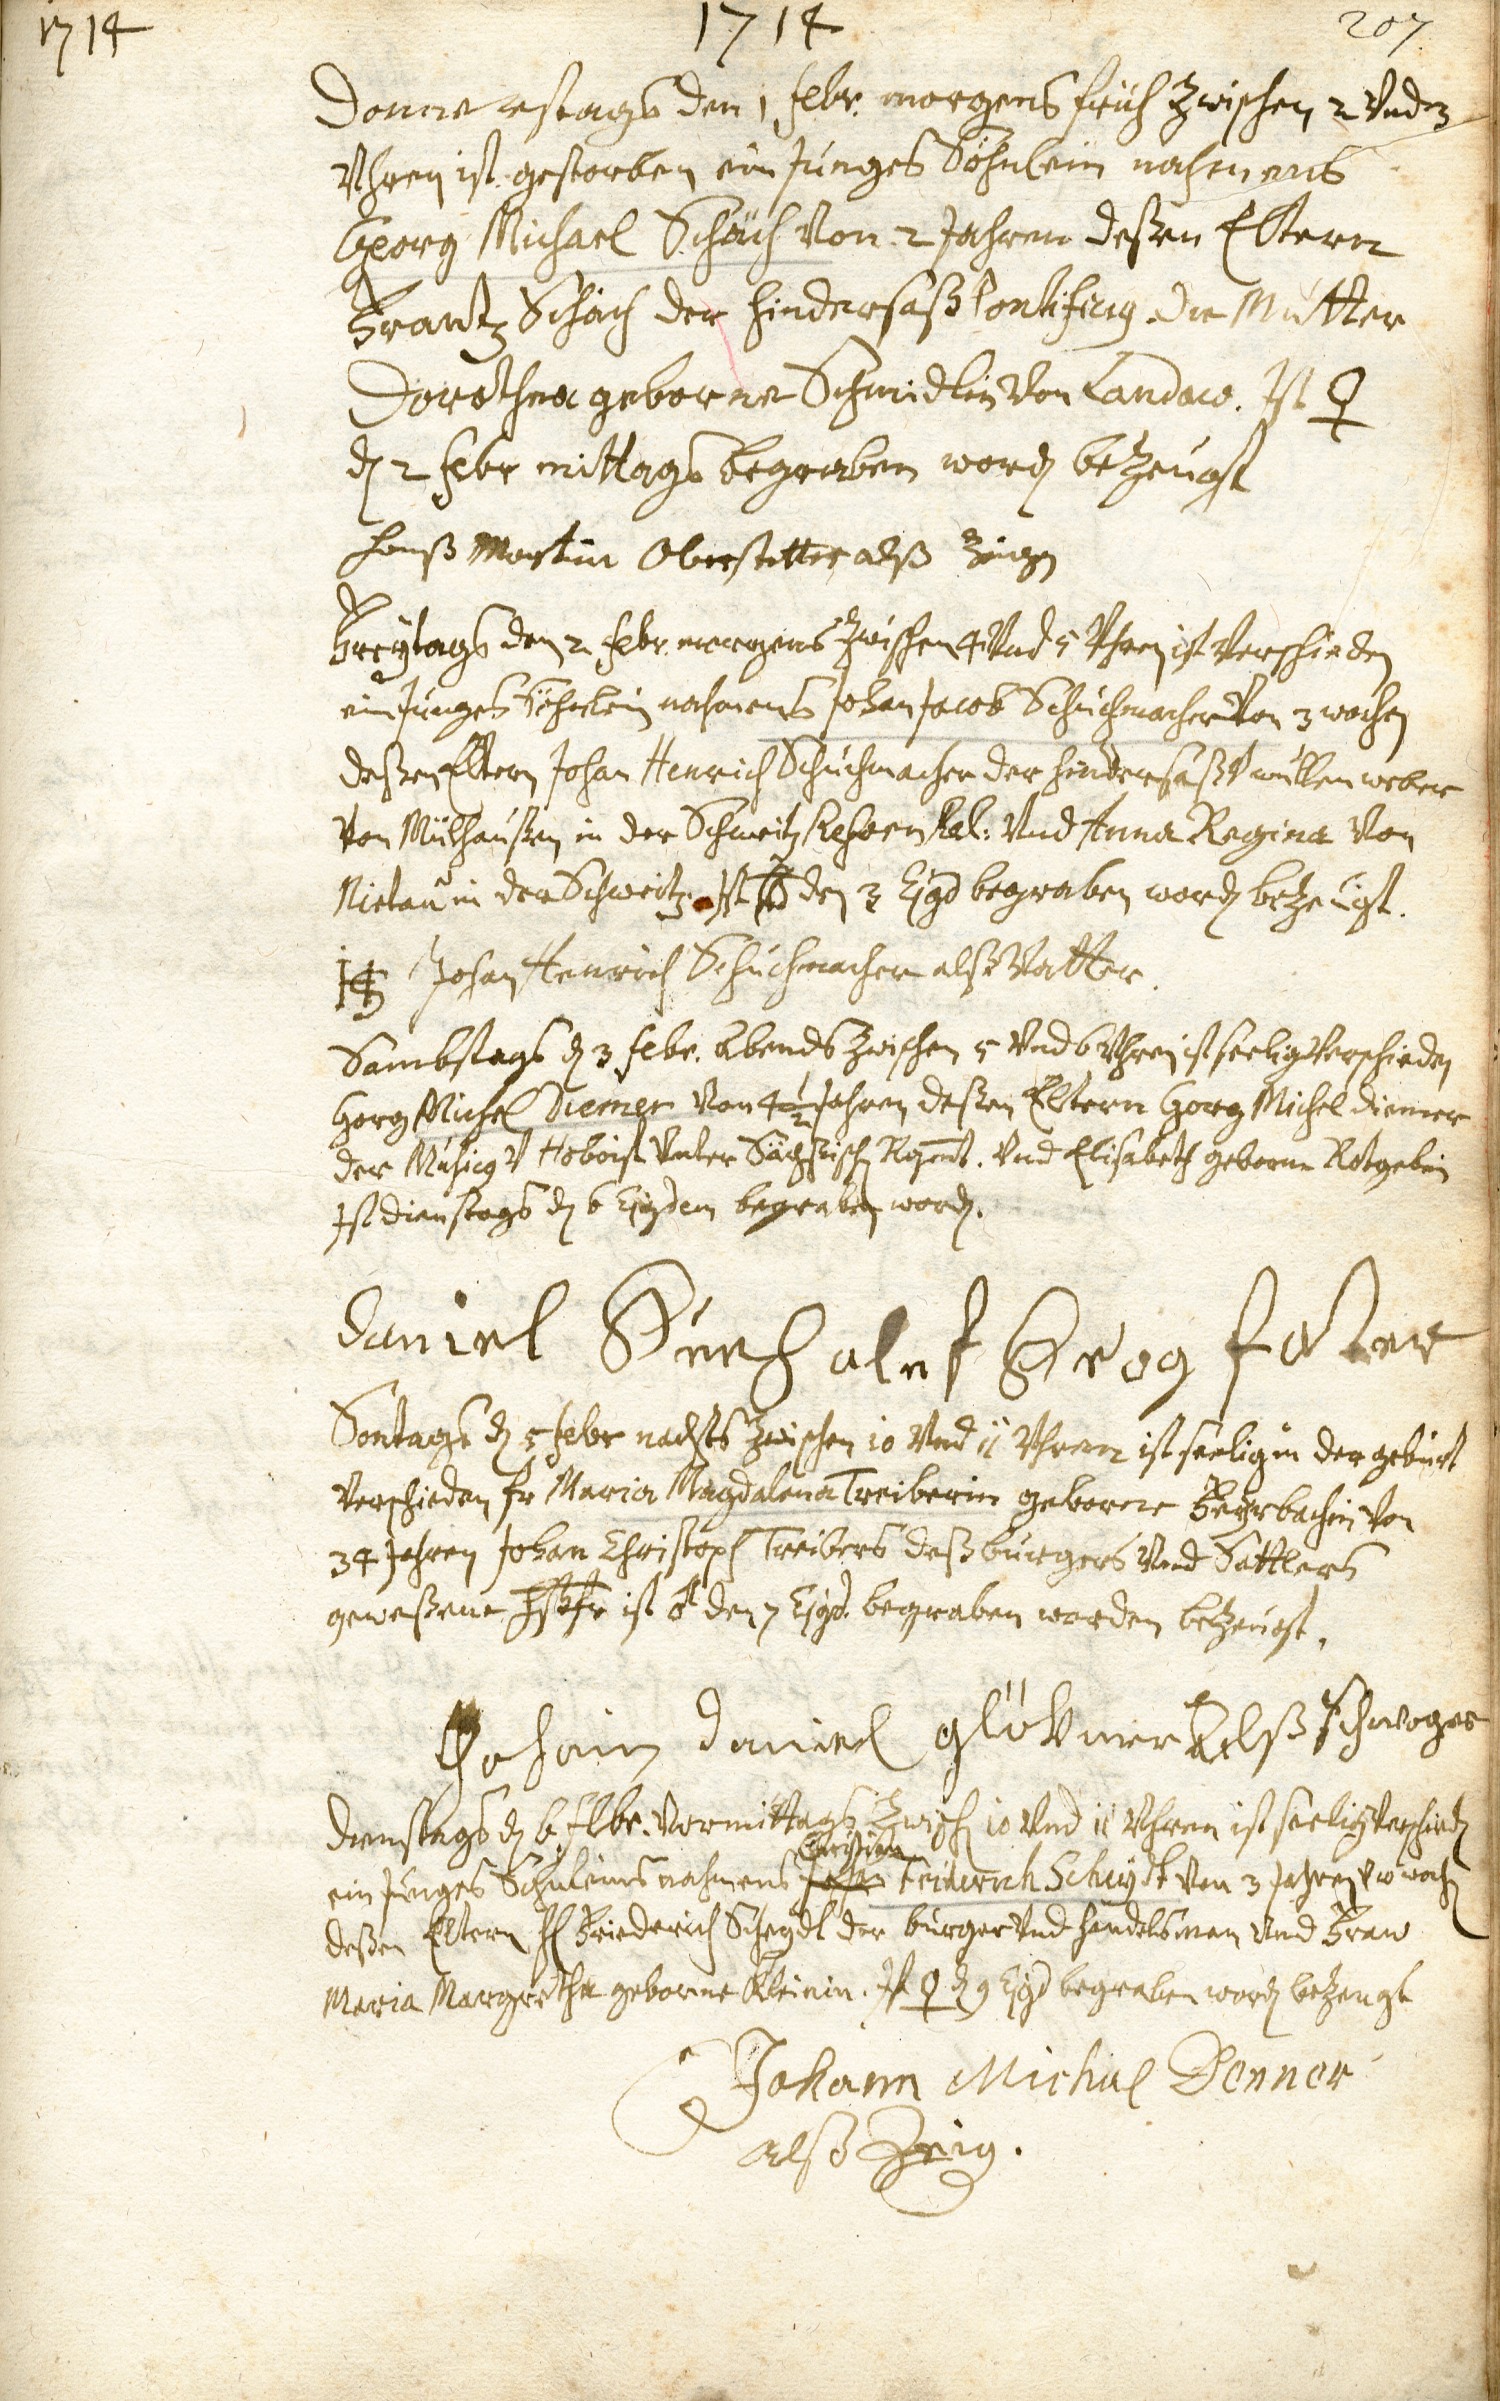 1714 1714 207.
Donnerstags den 1 febr. morgens früh zwischen 2 Vnd 3
Vhren ist gestorben ein Junges Söhnlein nahmens
Georg Michael Schäch von 2 Jahren deßen Eltern
Frantz Schäch der hindersaß Pontificig die Mutter
Dorothea geborne Schmidlin von Landaw. Ist ♀
dn 2 febr mittags begraben word bezeugt
Hanß Martin Oberstetter alß Zeug
Freytags den 2 febr. morgens zwischen 4 Vnd 5 Vhren ist Verschieden
ein Junges Söhnlein nahmens Johan Jacob Schuchmacher Von 3 wochen
deßen Eltern Johan Henrich Schuchmacher der hindersaß V wüllenweber
von Mülhaußen in der Schweitz Vnd Anna Regina Von
Nietau in der Schweitz. Ist den 3 Ejgd begraben word bezeugt.
Johan Henrich Schuchmacher alß Vatter.
Sambstags dn 3 febr. Abends zwischen 5 Vnd 6 Vhren ist seelig Verschieden
Georg Michel Diemer Von 4 1/2 Jahren deßen Eltern Georg Michel Diemer
der Musicg V Hoboist Vnter Sächsisch Regmt. Vnd Elisabeth geborne Rotgebin
Ist dienstags dn 6 Ejgdem begraben word.
Daniel alß
Sontags dn 5 febr nachts zwischen 10 Vnd 11 Vhren ist seelig in der geburt
Verschieden fr Maria Magdalena Treiberin geborne Feyrbachin Von
34 Jahren Johan Christoph Treibers deß burgers Vnd Sattlers
geweßene Hßfr ist ♂ den 7 Ejgd. begraben worden bezeugt.
Johann Daniel alß schwager
Dienstags dn 6 febr. Vormittags zwisch 10 Vnd 11 Vhren ist seelig Verschied
Christian
ein Junges Söhnleins nahmens Feiderich Scheydt Von 3 Jahren
deßen Eltern H Friederich Scheydt der burger Vnd handelsman Vnd Fraw
Maria Margretha geborne Kleinin. Ist ♀ dn 9 Ejgd begraben word bezeugt
Johann Michael Denner
alß Zeug.